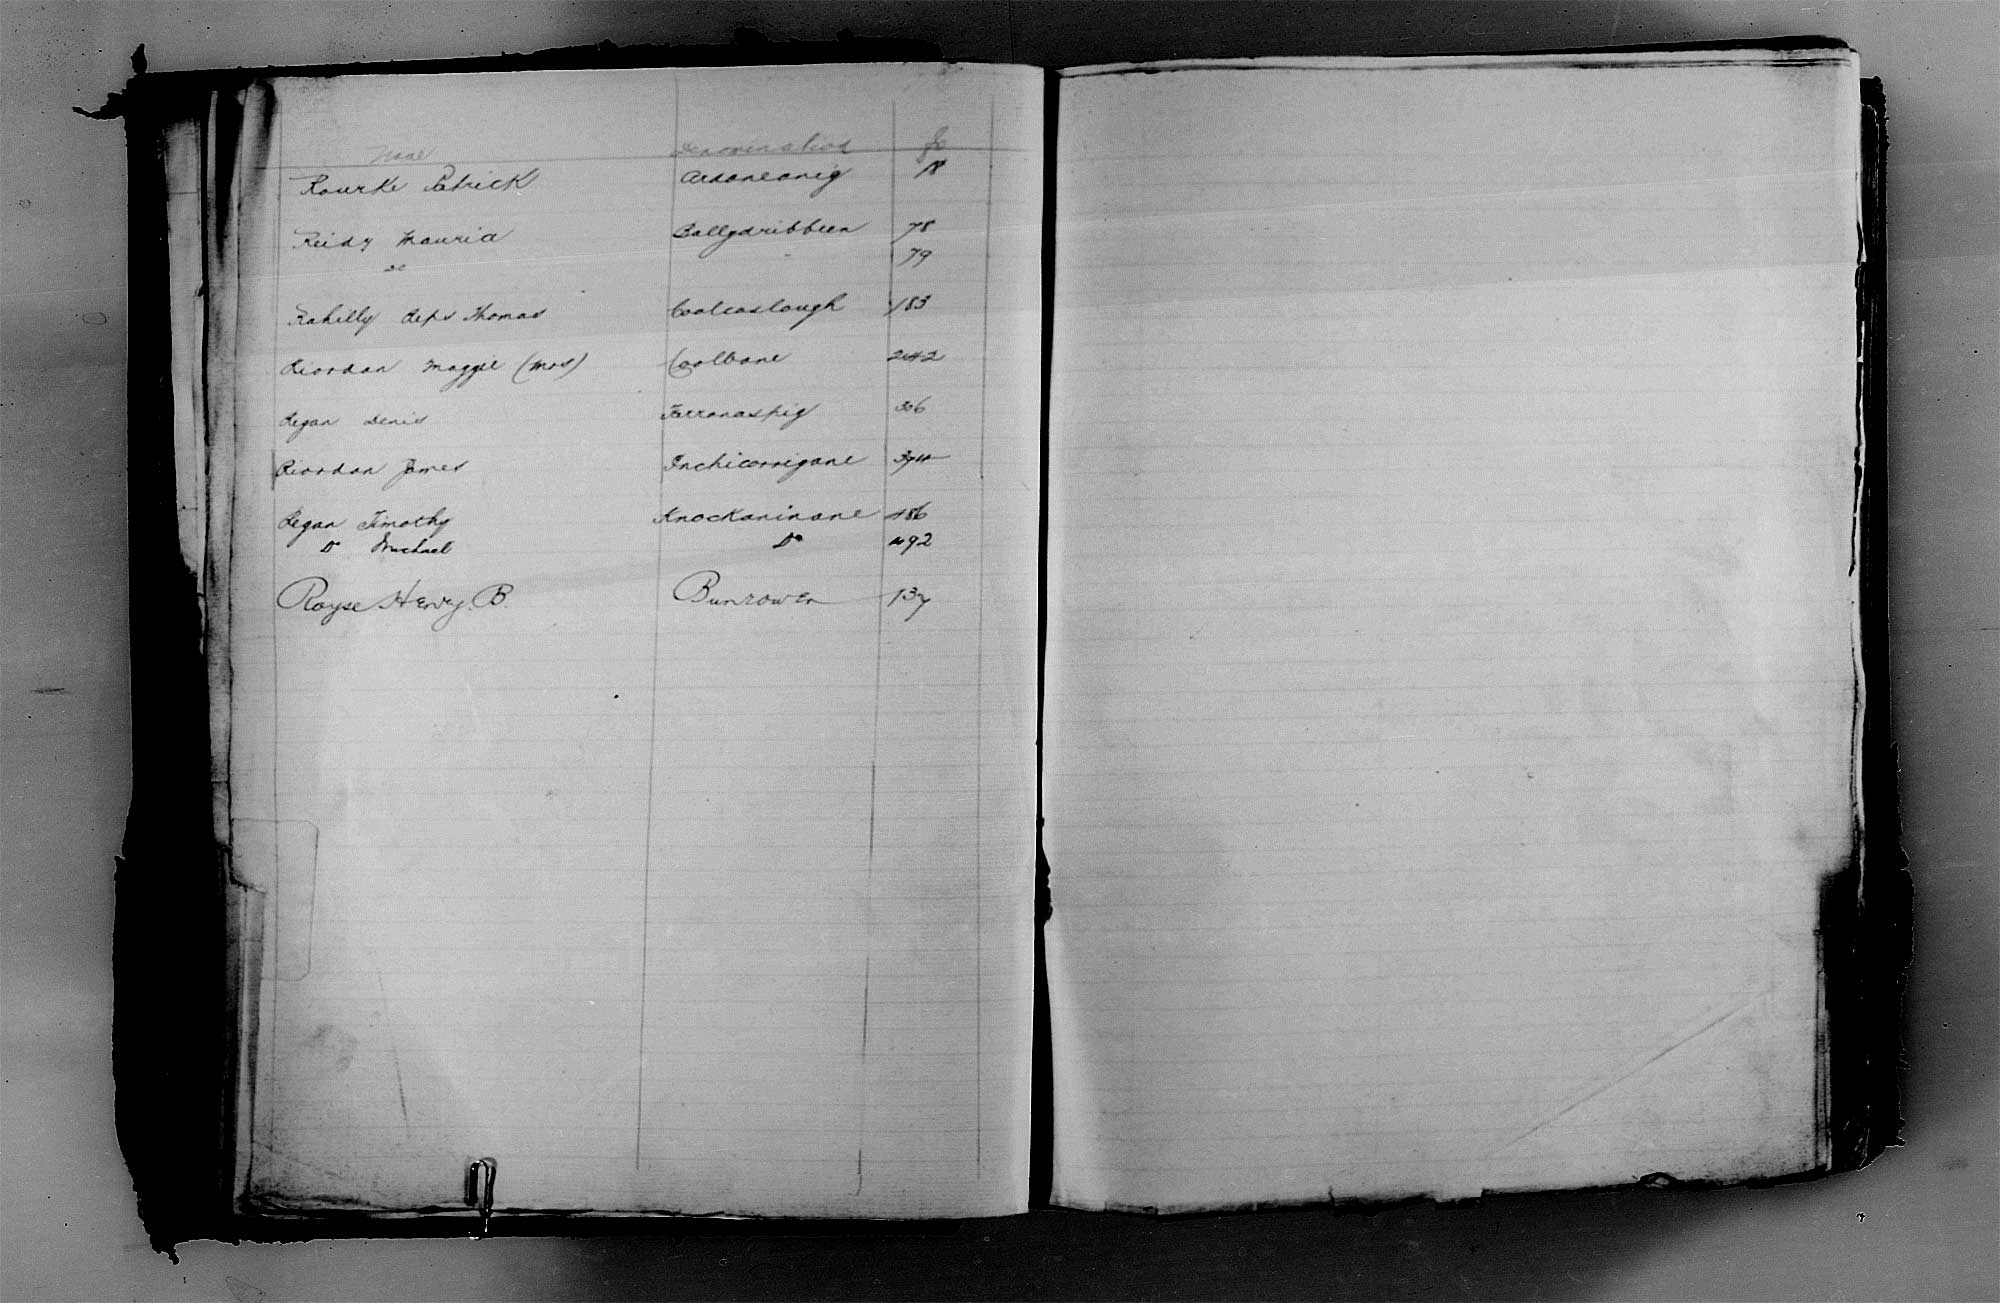 Name Denomination fo
Rourke Patrick Ardaneanig 18
Reidy Mauria Ballydribbeen 78
Do " 79
Rahilly Reps Thomas Coolcaslough 183
Riordan Maggie (Mrs) Coolbane 242
Regan Denis Farranaspig 306
Riordan James Inchicorrigane 394
Regan Timothy Knockaninane 486
Do Michael Do 492
Royse Henry. B. Bunrower 137